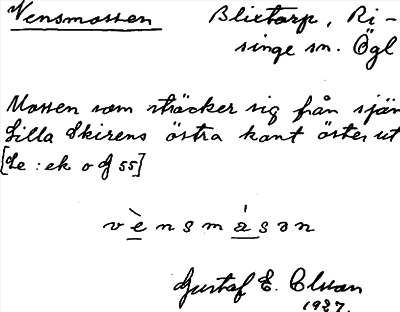 Vensmossen Blixtorp, Ri-
singe sn. Ögl
Mossen som sträcker sig från sjän
Lilla Skirens östra kant öster ut
[Le : ek o g 55]
v è n s m á s ə n
Gustaf E.
1927.